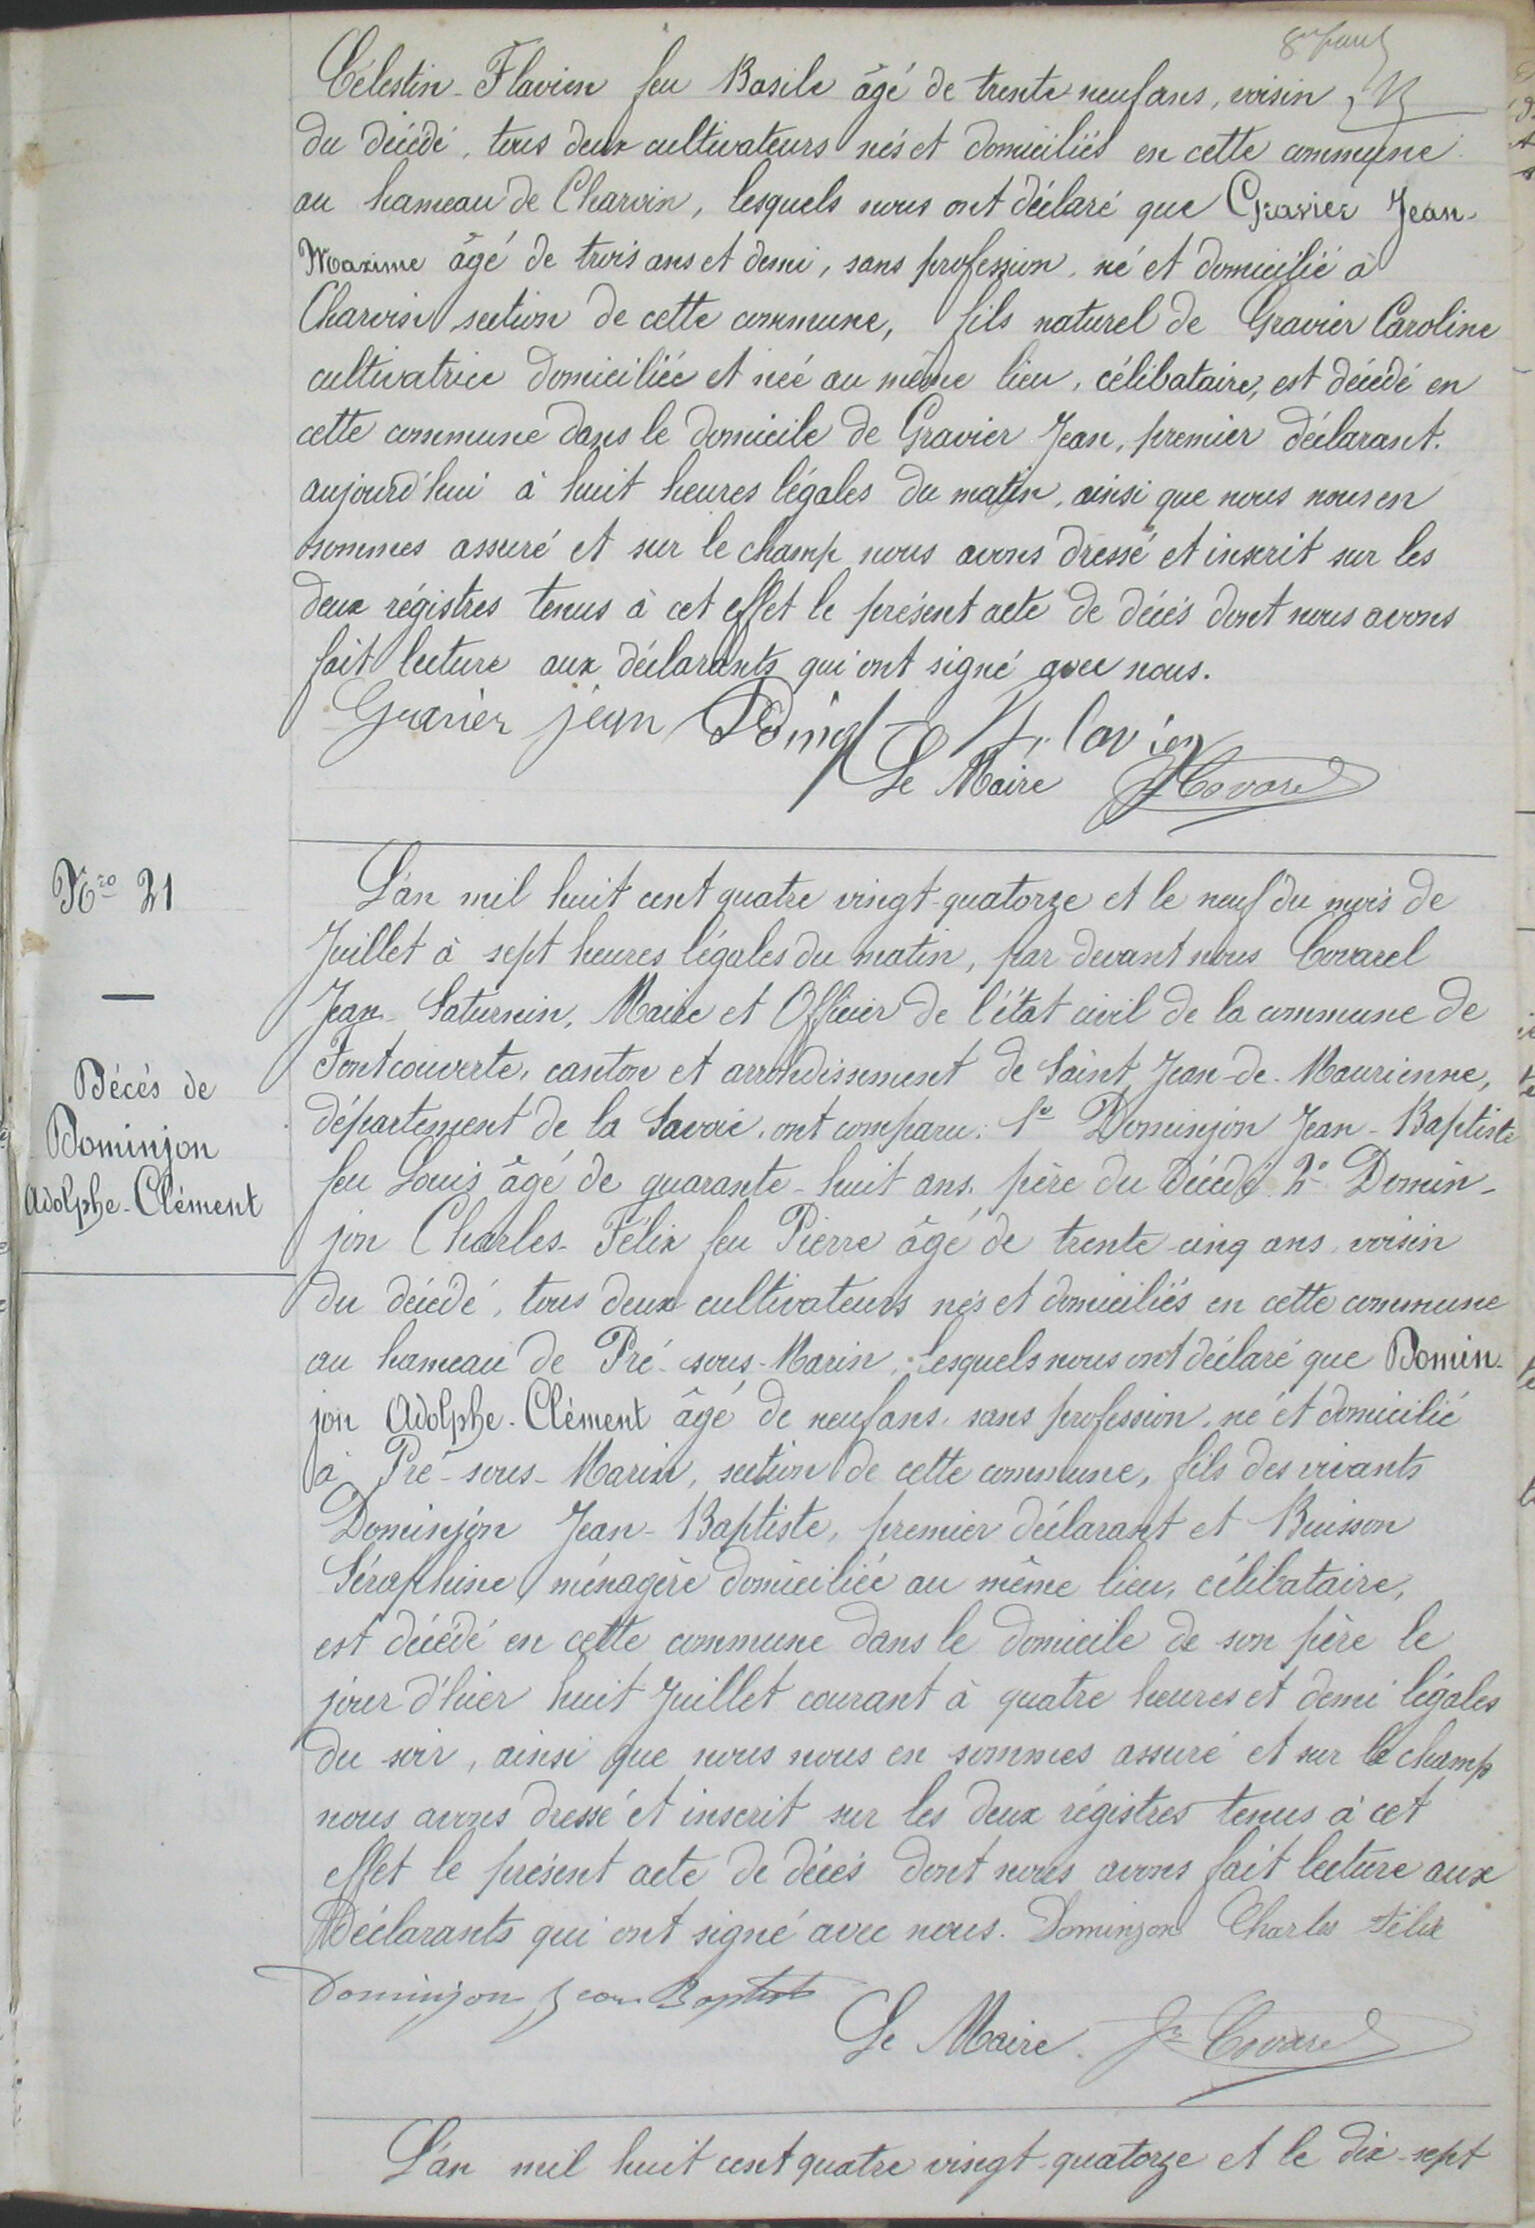 Célestin-Flavien feu Basile âgé de trente neuf ans, voisin
du décédé, tous deux cultivateurs nés et domiciliés en cette commune
au hameau de Charvin, lesquels nous ont déclaré que Gravier Jean-
Maxime âgé de trois ans et demi, sans profession, né et domicilié à
Charvin section de cette commune, fils naturel de Gravier Caroline
cultivatrice domiciliée et née au même lieu, célibataire, est décédé en
cette commune dans le domicile de Gravier Jean, premier déclarant.
aujourd'hui à huit heures légales du matin, ainsi que nous nous en
sommes assuré et sur le champ nous avons dressé et inscrit sur les
deux régistres tenus à cet effet le présent acte de décés dont nous avons
fait lecture aux déclarants qui ont signé avec nous.
Gravier jean Flavien
Le Maire Jn Covarel
Nro 21
Décés de
Dominjon
Adolphe-Clément
L'an mil huit cent quatre vingt-quatorze et le neuf du mois de
Juillet à sept heures légales du matin, par devant nous Covarel
Jean-Saturnin, Maire et Officier de l'état civil de la commune de
Fontcouverte, canton et arrondissement de Saint Jean-de-Maurienne,
département de la Savoie, ont comparu: 1o Dominjon Jean-Baptiste
feu Louis âgé de quarante-huit ans, père du décédé 2o Domin-
jon Charles-Félix feu Pierre âgé de trente-cinq ans, voisin
du décédé, tous deux cultivateurs nés et domiciliés en cette commune
au hameau de Pré-sous-Marin, lesquels nous ont déclaré que Domin-
jon Adolphe-Clément âgé de neuf ans, sans profession, né et domicilié
à Pré-sous-Marin, section de cette commune, fils des vivants
Dominjon Jean-Baptiste, premier déclarant et Buisson
Séraphine ménagère domiciliée au même lieu, célibataire,
est décédé en cette commune dans le domicile de son père le
jour d'hier huit Juillet courant à quatre heures et demi légales
du soir, ainsi que nous nous en sommes assuré et sur le champ
nous avons dressé et inscrit sur les deux régistres tenus à cet
effet le présent acte de décés dont nous avons fait lecture aux
Déclarants qui ont signé avec nous. Dominjon Charles Félix
Dominjon Jean Baptiste
Le Maire. Jn Covarel
L'an mil huit cent quatre vingt-quatorze et le dix-sept